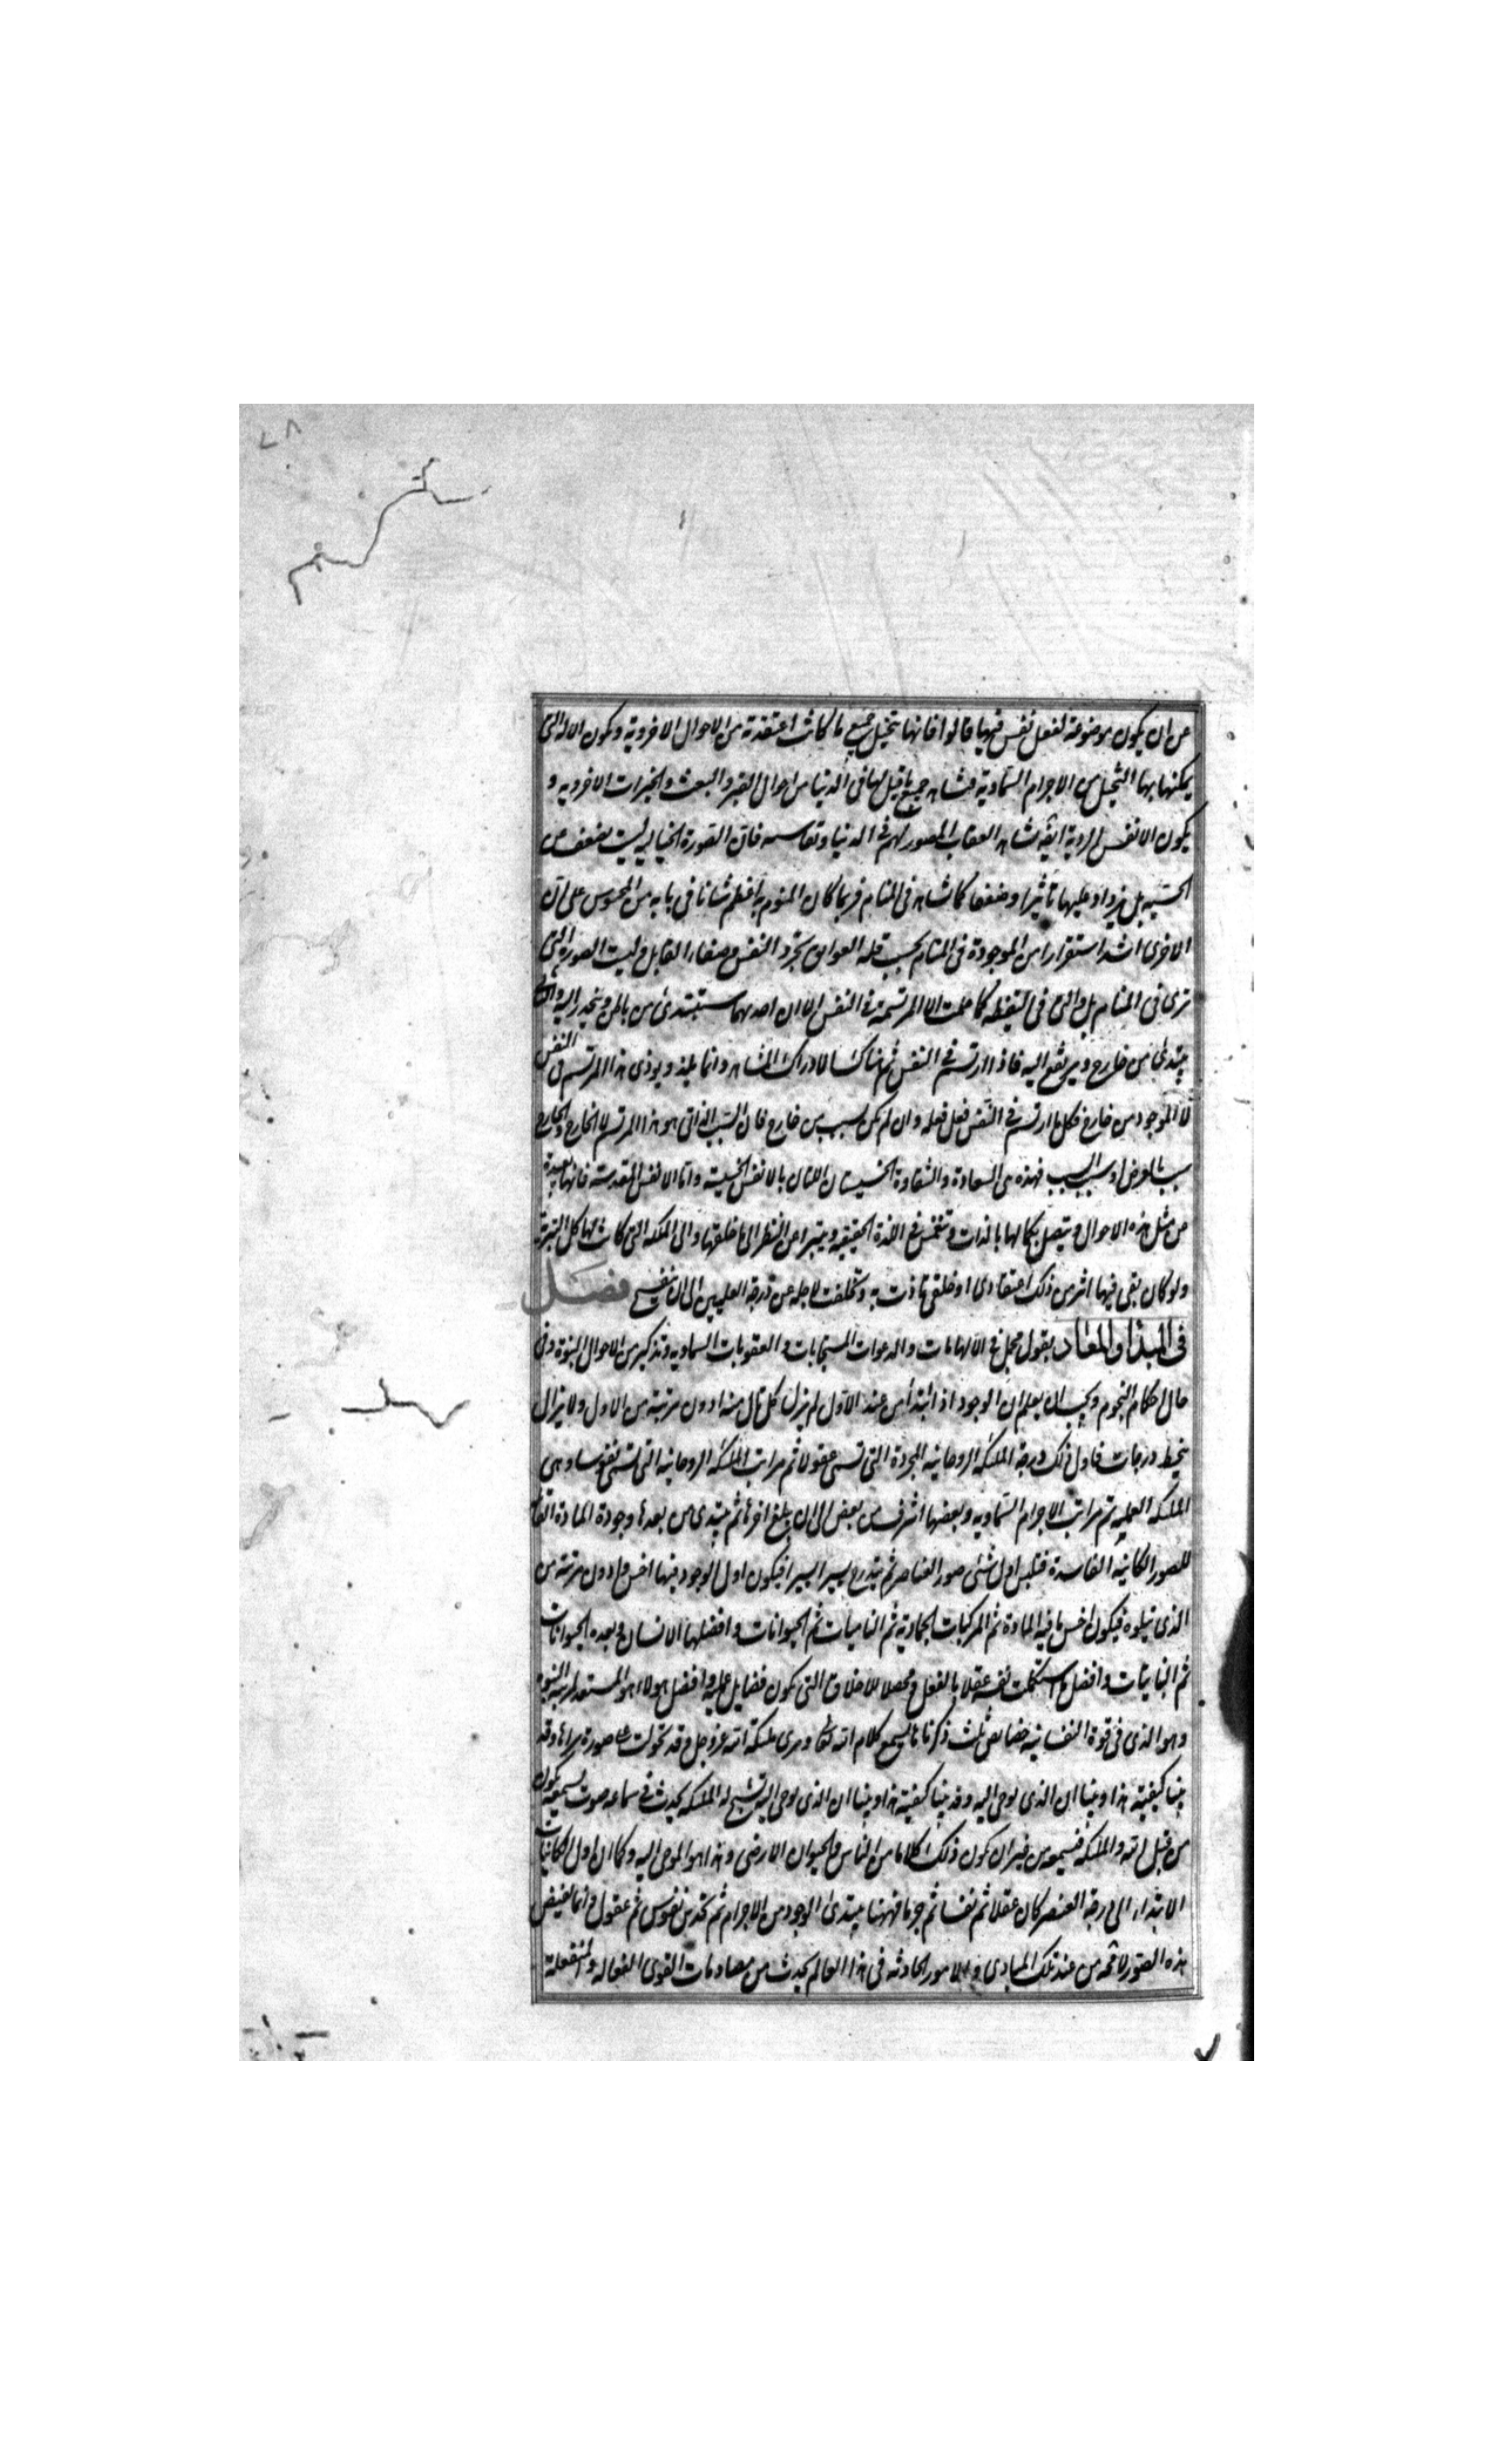 ٧٨
عن ان يكون موضوعة لفعل نفس فيها قالوا فانها تتخيل جميع ما كانت اعتقدته من الاحوال الاخروية وتكون الالة التى
يمكنها بها التخيل من الاجرام السماوية فتشاهد جميع ما قيل لها فى الدنيا من احوال القبر والبعث والخيرات الاخروية و
يكون الانفس الردية ايضا تشاهد العقاب المصور لهم فى الدنيا وتقاسيه فان الصورة الخيالية ليست تضعف عن
الحسية بل يزداد عليها تأثيرا وضعفا كما تشاهد فى المنام فربما كان المنوم به اعظم شانا فى بابه من المحسوس على ان
الاخرى اشد استقرارا من الموجودة فى المنام بحسب قلة العوايق وتجرد النفس وصفاء القابل وليست الصورة التى
ترى فى المنام بل والتى فى اليقظة كما علمت الا المرتسمة فى النفس الا ان احديهما يبتدئ من باطن وينحدر اليه والثانى
يبتدئ من خارج ويرتفع اليه فاذا ارتسم فى النفس ثم هناك الادراك المشاهد وانما يلذ ويوذى هذا المرتسم فى النفس
لا الموجود من خارج فكل ما ارتسم فى النفس فعل فعله وان لم يكن سبب من خارج فان السبب الذاتى هو هذا المرتسم لا الخارج والخارج
سبب بالعرض او سبب السبب فهذه هى السعادة والشقاوة الخسيستان اللتان بالانفس الخسيسة واما الانفس المقدسة فانها بعيدة
عن مثل هذه الاحوال ويتصل بكمالها بالذات وتنغمس فى اللذة الحقيقية ويتبرا عن النظر الى ما خلفها والى المملكة التى كانت لها كل التبرى
ولو كان بقى فيها اثر من ذلك اعتقادى او خلقى تاذت به وتخلفت لاجله عن درجة العليين الى ان تنفسخ فصل
فى المبدا والمعاد بقول مجمل فى الالهامات والدعوات المستجابات والعقوبات السماوية وتذكير من الاحوال النبوة وفى
حال احكام النجوم ويجب ان يعلم ان الوجود اذا ابتدأ من عند الاول لم يزل كل تال منه ادون مرتبة من الاول ولا يزال
ينحط درجات فاول ذلك درجة الملئكة الروحانية المجردة التى تسمى عقولا ثم مراتب الملئكة الروحانية التى تسمى نفوسا وهى
الملئكة العملية ثم مراتب الاجرام السماوية وبعضها اشرف من بعض الى ان يبلغ اخرها ثم يبتدى من بعدها وجودة المادة القابلة
للصور الكاينة الفاسدة فتلبس اول شئ صور العناصر ثم يتدرج يسيرا يسيرا فيكون اول الوجود فيها اخس وادون مرتبة من
الذى يتلوه فيكون اخس ما فيه المادة ثم المركبات الجمادية ثم الناميات ثم الحيوانات وافضلها الانسان وبعده الحيوانات
ثم النباتات وافضل من استكملت نفسه عقلا بالفعل ومحصلا للاخلاق التى يكون فضايل عملية وافضل هولاء هو المستعد لمرتبة النبوة
وهو الذى فى قوة النفسانية خصايص ثلث ذكرناها يسمع كلام الله تعالى ويرى ملئكة الله عز وجل وقد تحولت على صورة يراها وقد
بينا كيفية هذا وبينا ان الذى يوحى اليه وقد بينا كيفية هذا وبينا ان الذى يوحى اليه تتشبح له الملئكة يحدث فى سماعه صوت يسمعه يكون
من قبل الله والملئكة فيسمعه من غير ان يكون ذلك كلاما من الناس والحيوان الارضى وهذا هو الموحى اليه وكما ان اول الكاينات
الابتداء الى درجة العنصر كان عقلا ثم نفسا ثم جرما فههنا يبتدئ الوجود من الاجرام ثم تحدث نفوس ثم عقول وانما تفيض
هذه الصور لا محه من عند تلك المبادى والامور الحادثه فى هذا العالم يحدث من مصادمات القوى الفعالة والمنفعلة